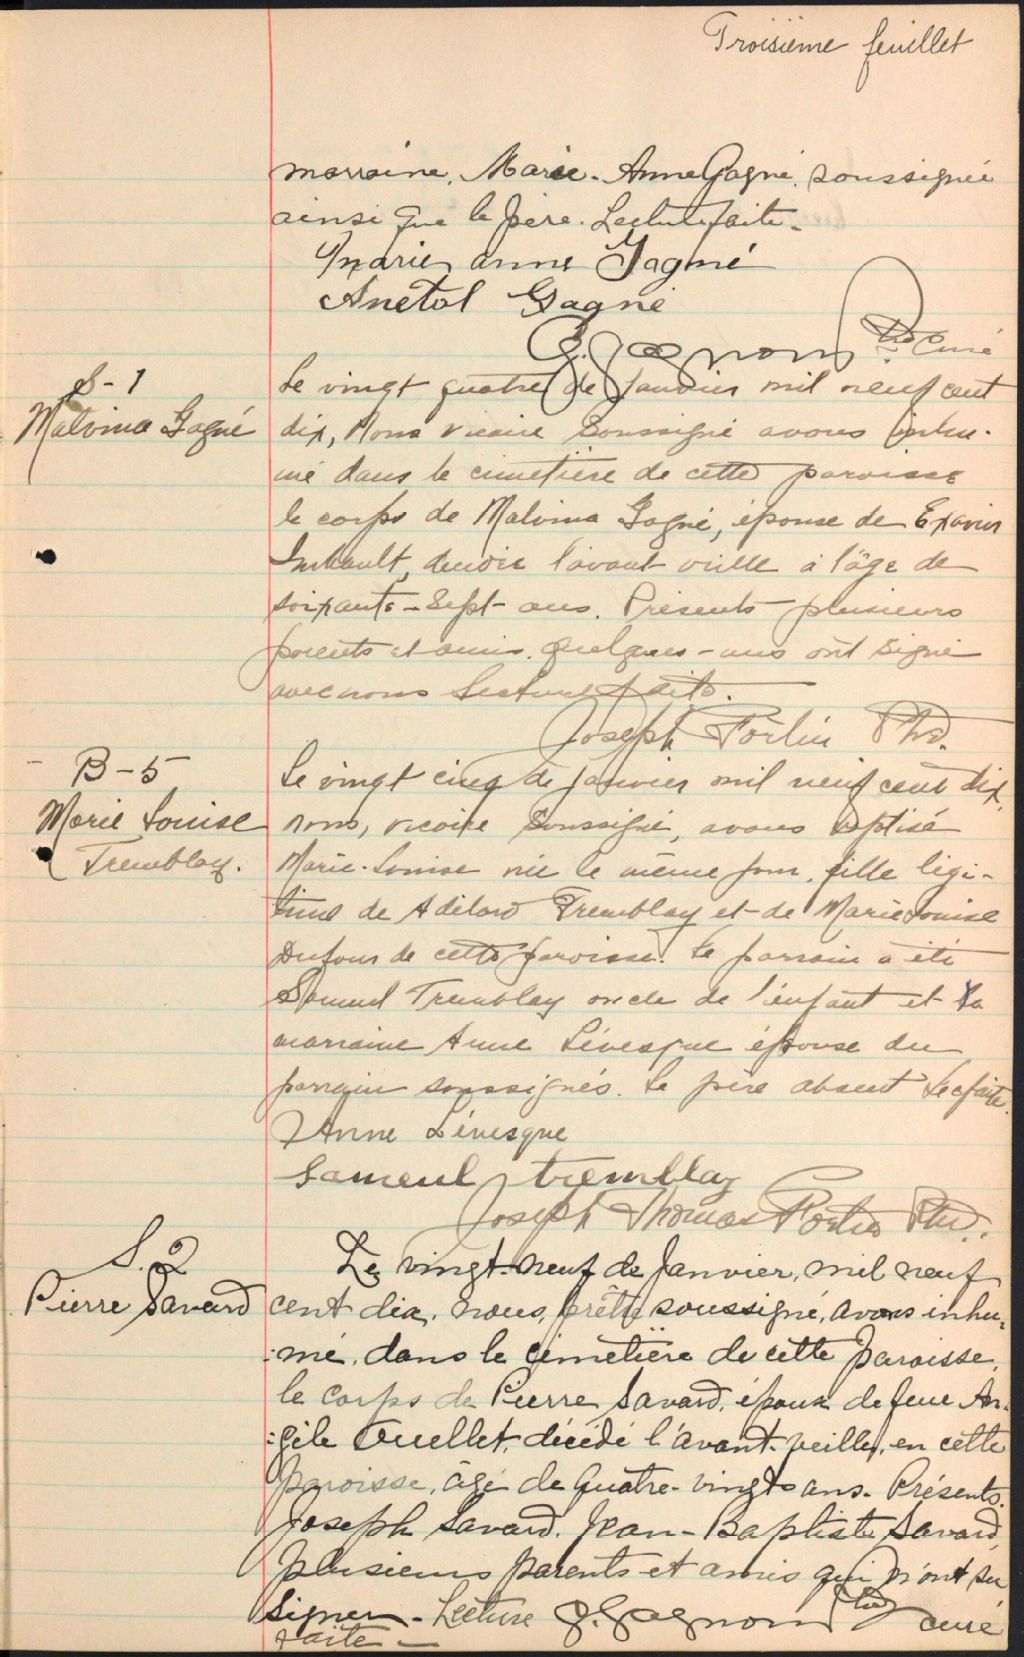 Troisième feuillet
marraine, Marie-Anne Gagné, soussignée
ainsi que le père. Lecture faite.
Marie anne Gagné
Anetol Gagné
G. Gagnon Ptre Curé
S-1
Malvina Gagné
Le vingt quatre de janvier mil neuf cent
dix, Nous vicaire soussigné avons inhu-
mé dans le cimetière de cette paroisse
le corps de Malvina Gagné, épouse de Exavier
Imbault, décédée l'avant veille à l'âge de
soixante-sept ans. Présents plusieurs
parents et amis. Quelques-uns ont signé
avec nous Lecture faite.
Joseph Fortin Ptre.
B-5
Marie Louise
Tremblay.
Le vingt cinq de janvier mil neuf cent dix,
nous, vicaire soussigné, avons baptisé
Marie-Louise née le même jour, fille légi-
time de Adélard Tremblay et de Marie Louise
Dufour de cette paroisse. Le parrain a été
Samuel Tremblay oncle de l'enfant et la
marraine Anne Lévesque épouse du
parrain soussignés. Le père absent Lec faite.
Anne Lévesque
Sameul tremblay
Joseph Thomas Fortin Ptre.
S. 2
Pierre Savard
Le vingt-neuf de Janvier, mil neuf
cent dix, nous, prêtre soussigné, avons inhu-
:mé, dans le cimetière de cette paroisse,
le corps de Pierre Savard, époux de feue An-
:gèle Ouellet, décédé l'avant-veille, en cette
paroisse, âgé de quatre-vingts ans. Présents,
Joseph Savard, Jean-Baptiste Savard,
plusieurs parents et amis qui n'ont su
signer. - Lecture G. Gagnon Ptre curé
faite -